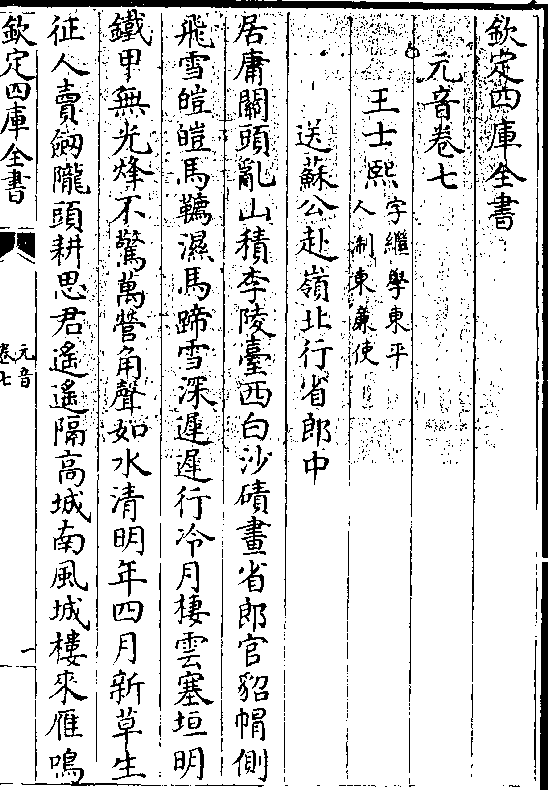 欽定四庫全書
元音卷七
王士熙字繼學東平人制東廉使
送蘇公赴嶺北行省郎中
居庸關頭亂山積李陵臺西白沙磧畫省郎官貂帽側
飛雪皚皚馬韉濕馬蹄雪深遲遲行冷月棲雲塞垣明
鐵甲無光烽不驚萬營角聲如水清明年四月新草生
征人賣劔隴頭耕思君遙遙隔高城南風城樓來雁鳴
欽定四庫全書
元音
卷七
一